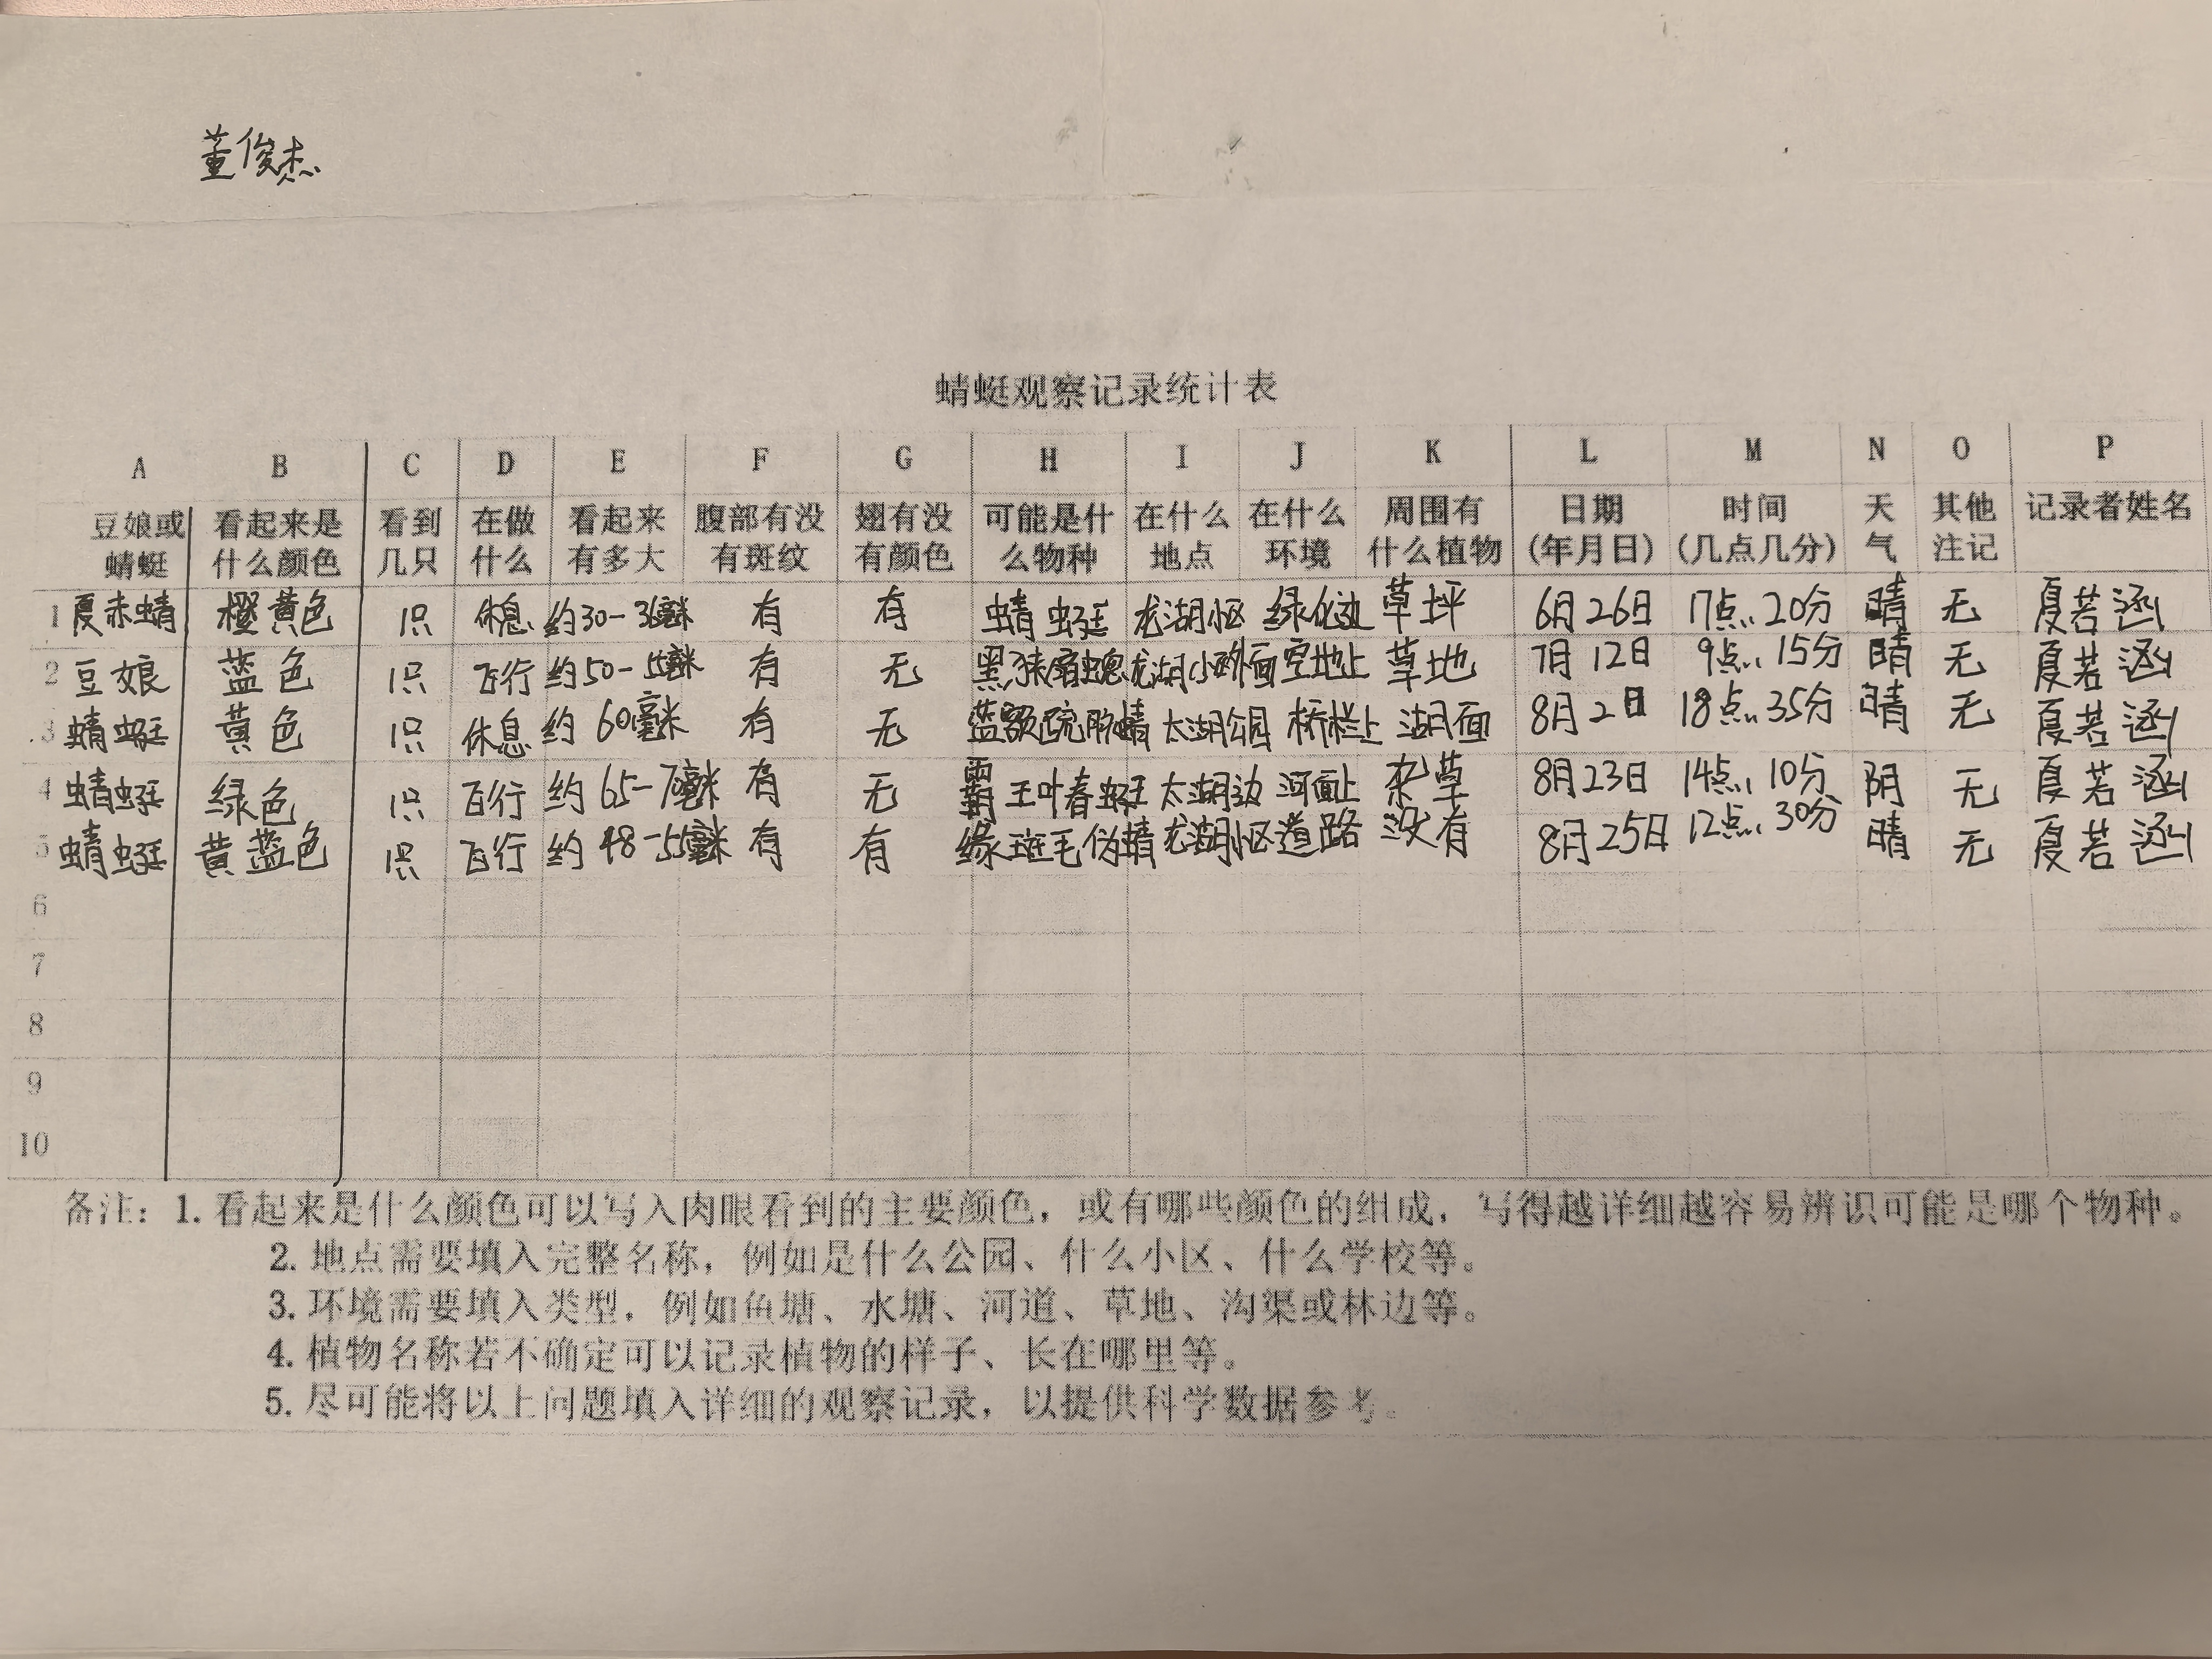 董俊杰
蜻蜓观察记录统计表
A B C D E F G H I J K L M N O P
豆娘或蜻蜓 看起来是什么颜色 看到几只 在做什么 看起来有多大 腹部有没有斑纹 翅有没有颜色 可能是什么物种 在什么地点 在什么环境 周围有什么植物 日期(年月日) 时间(几点几分) 天气 其他注记 记录者姓名
1 夏赤蜻 橙黄色 1只 休息 约30-36毫米 有 有 蜻蜓 龙湖小区 绿化边 草坪 6月26日 17点20分 晴 无 夏若涵
2 豆娘 蓝色 1只 飞行 约50-55毫米 有 无 黑狭扇蟌 龙湖小区外面 空地上 草地 7月12日 9点15分 晴 无 夏若涵
3 蜻蜓 黄色 1只 休息 约60毫米 有 无 蓝额疏脉蜻 太湖公园 桥栏上 湖面 8月2日 18点35分 晴 无 夏若涵
4 蜻蜓 绿色 1只 飞行 约65-70毫米 有 无 霸王叶春蜓 太湖边 河面上 杂草 8月23日 14点10分 阴 无 夏若涵
5 蜻蜓 黄蓝色 1只 飞行 约48-55毫米 有 有 缘斑毛伪蜻 龙湖小区 道路 没有 8月25日 12点30分 晴 无 夏若涵
6
7
8
9
10
备注：1. 看起来是什么颜色可以写入肉眼看到的主要颜色，或有哪些颜色的组成，写得越详细越容易辨识可能是哪个物种。
2. 地点需要填入完整名称，例如是什么公园、什么小区、什么学校等。
3. 环境需要填入类型，例如鱼塘、水塘、河道、草地、沟渠或林边等。
4. 植物名称若不确定可以记录植物的样子、长在哪里等。
5. 尽可能将以上问题填入详细的观察记录，以提供科学数据参考。